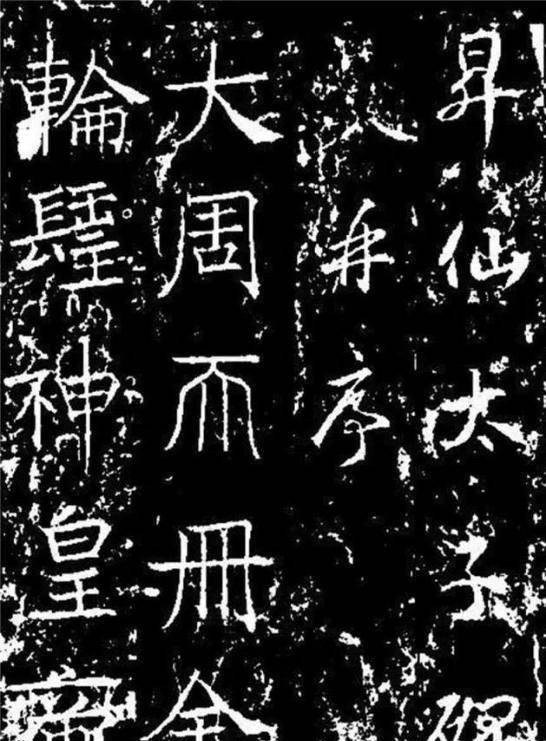 昇仙太子碑
并序
大周𠀑冊金
輪𨲢神皇帝